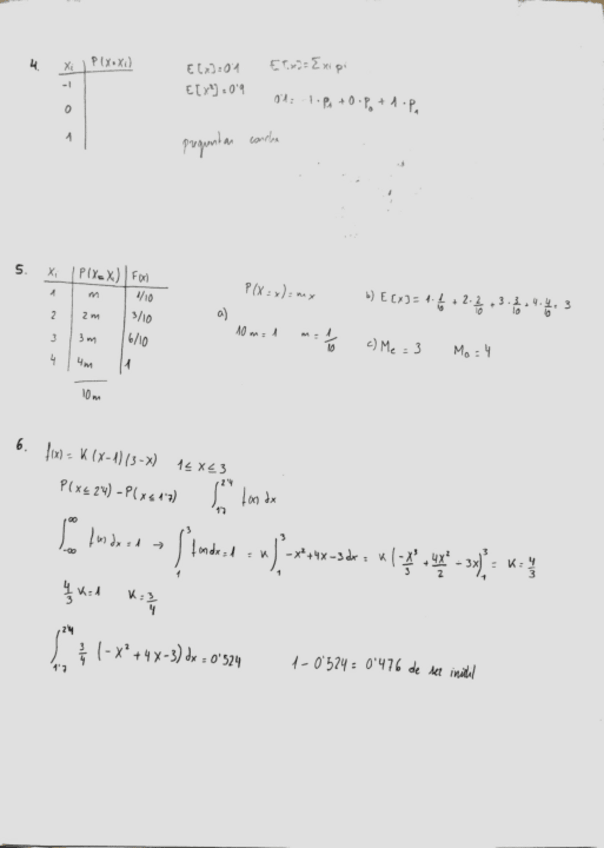 4. Xi | P(X=Xi)
E[x]=0'1 E[x]=Σxi pi
-1
E[x²]=0'9
0'1= -1·P₁+0·P₀+1·P₁
0
1
preguntar
5. Xi | P(X=Xi) | F(x)
1 | m | 1/10
2 | 2m | 3/10
3 | 3m | 6/10
4 | 4m | 1
10m
P(X=x)=mx
a)
10m=1 m=1/10
b) E[x]=1·1/10+2·2/10+3·3/10+4·4/10=3
c) Me=3 Mo=4
6. f(x)=K(x-1)(3-x) 1≤x≤3
P(x≤2'4)-P(x≤1'7) ∫₁'₇²'⁴ f(x)dx
∫₋∞^∞ f(x)dx=1 → ∫₁³ f(x)dx=1=K∫₁³ -x²+4x-3dx=K(-x³/3+4x²/2-3x)₁³=K=4/3
4/3 K=1 K=3/4
∫₁'₇²'⁴ 3/4 (-x²+4x-3)dx=0'524 1-0'524=0'476 de ser inútil